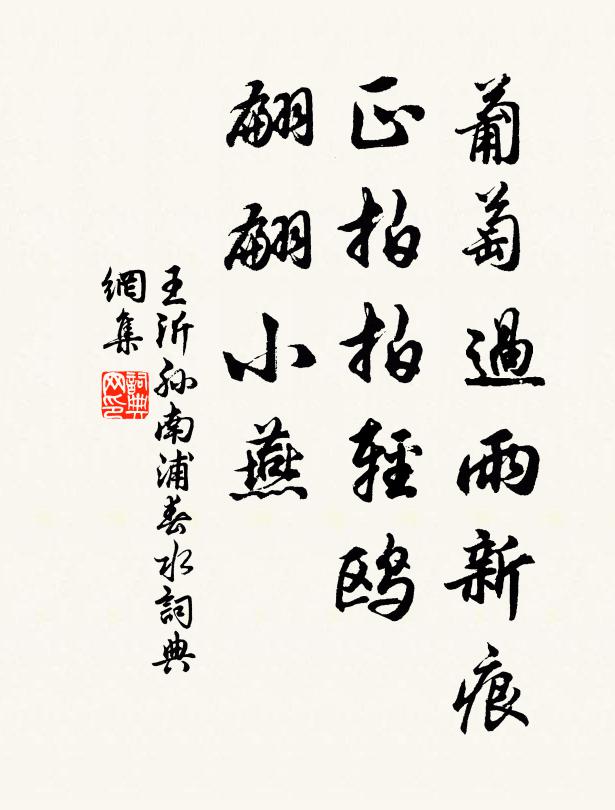 葡萄過雨新痕
正拍拍輕鷗
翩翩小燕
王沂孫南浦春水詞典
網集
詞典
网印